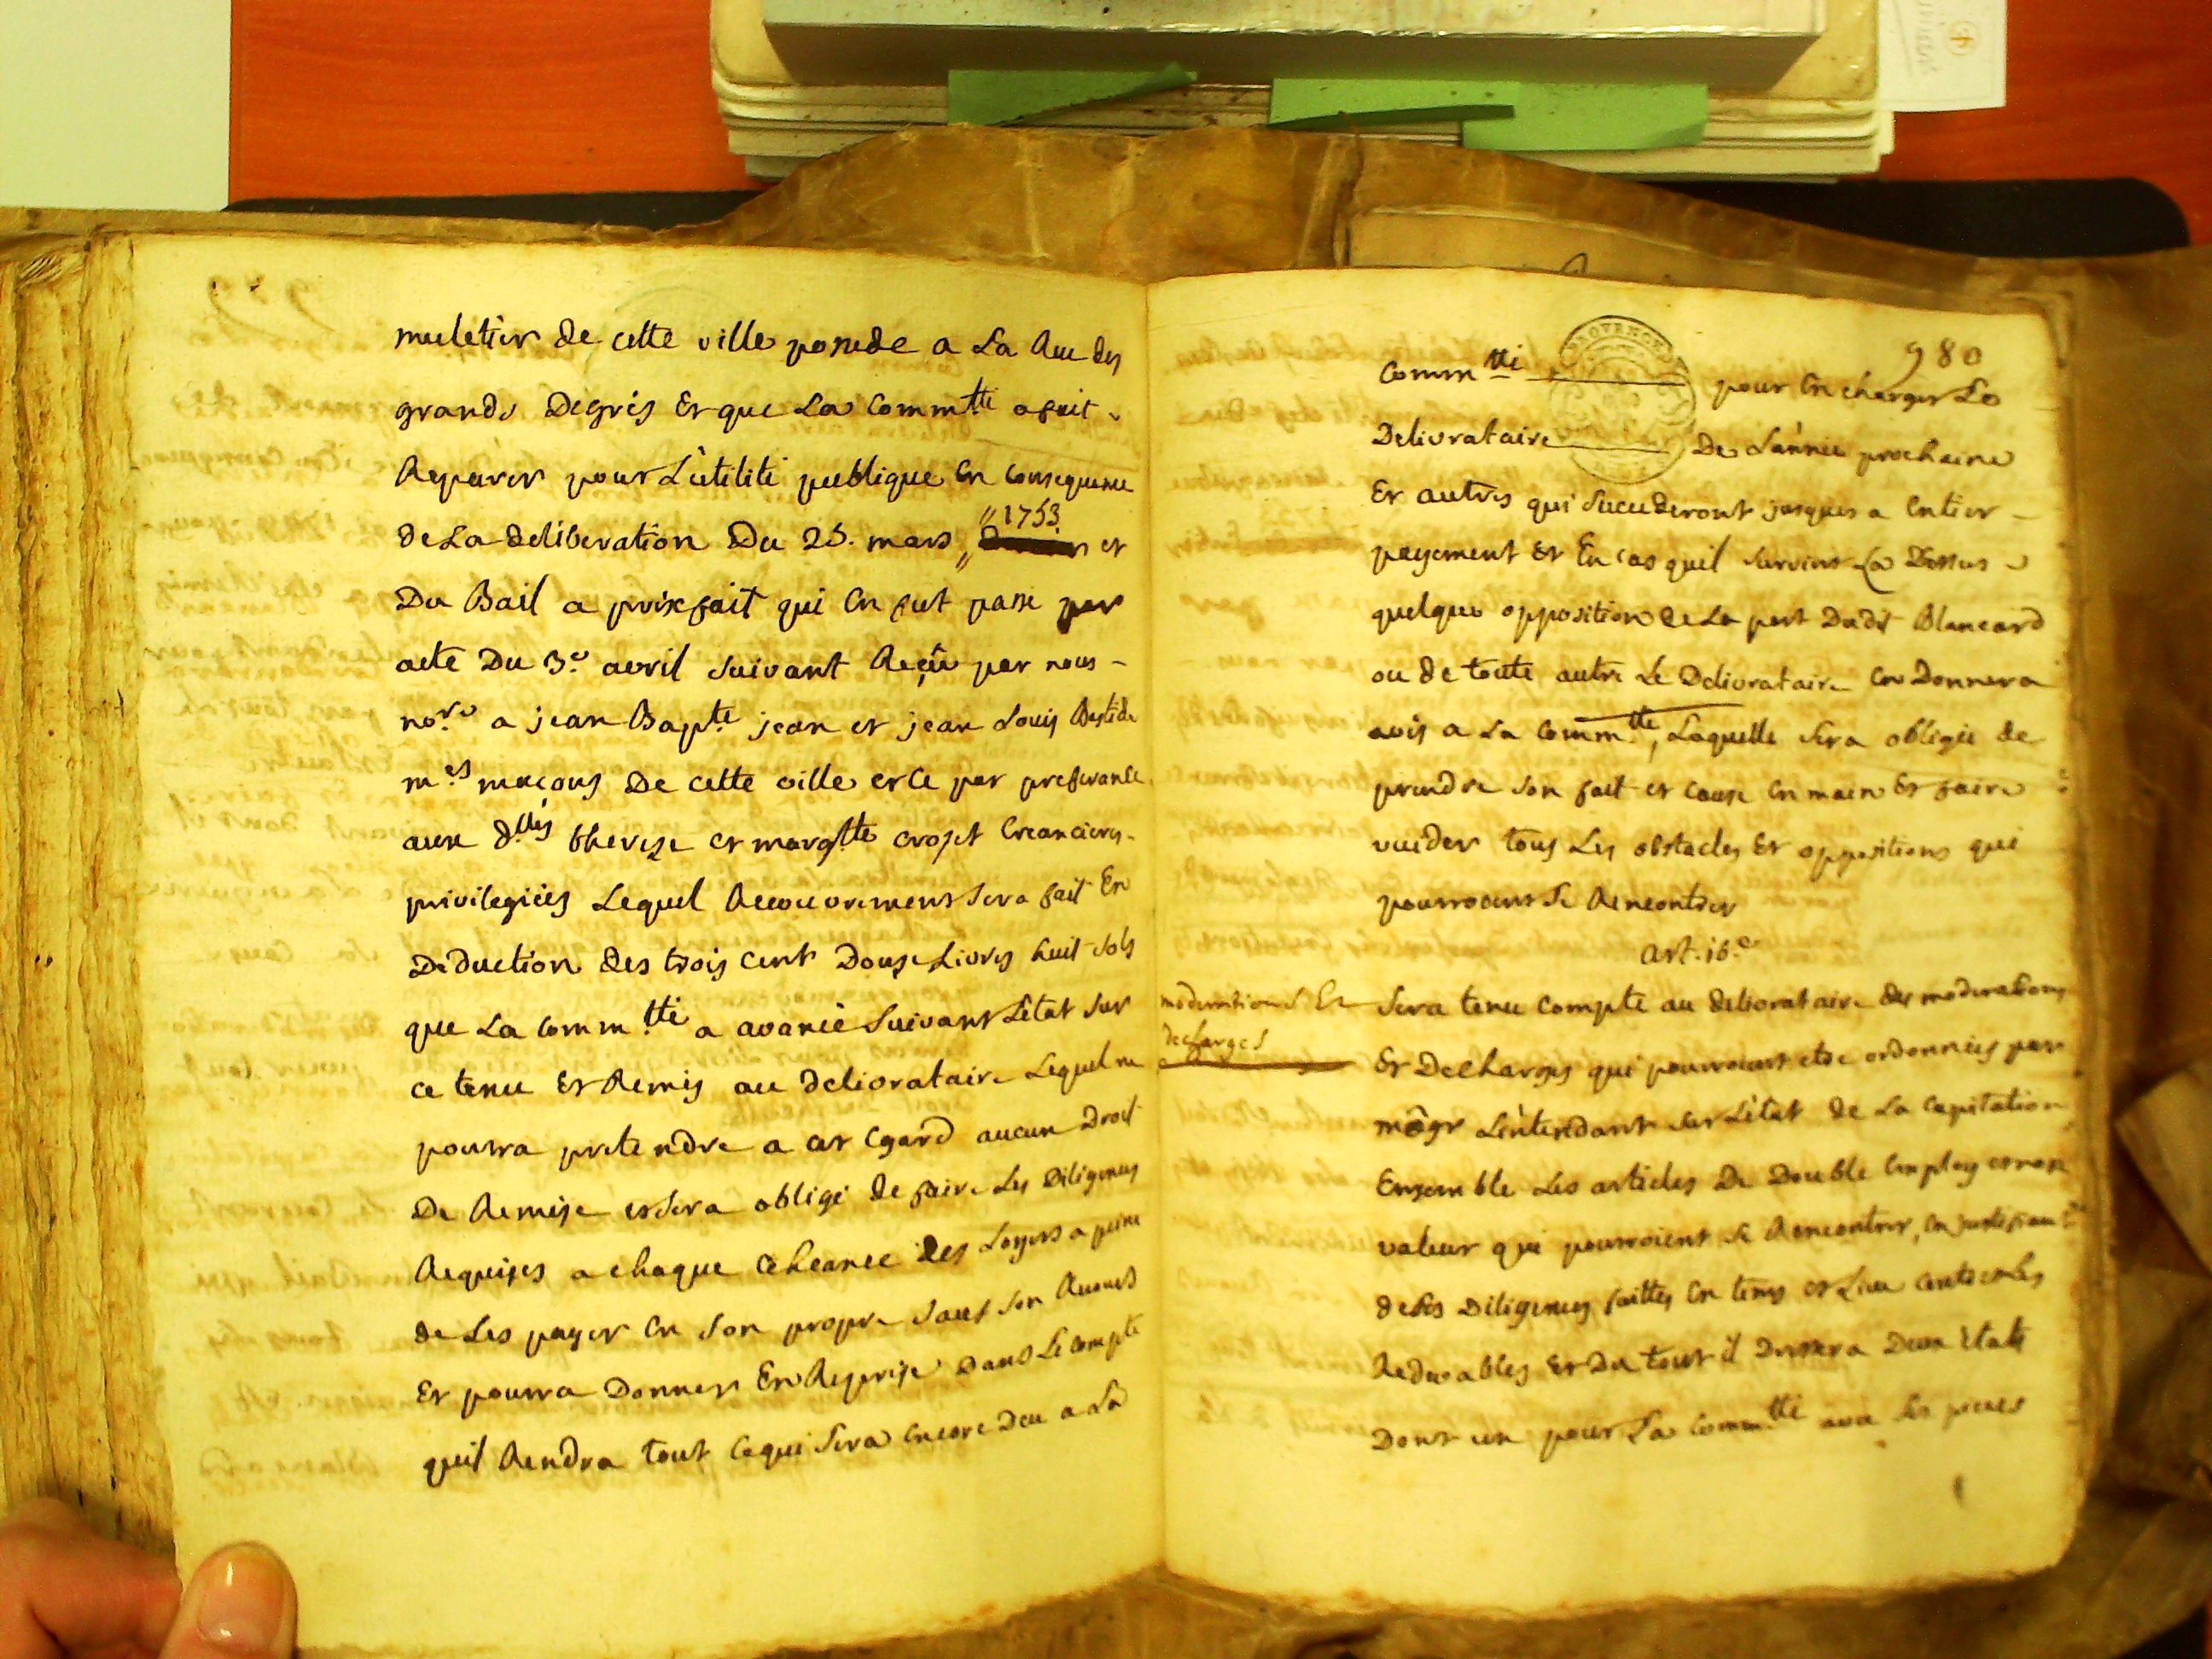 muletier de cette ville possede a La Rue des
grands Degrés Et que La Comm.tté a fait
Reparer pour L'utilité publique En Consequence
de La deliberation Du 25. mars " 1753. et
Du Bail a prix fait qui En fut passé par
acte Du 3.e avril suivant Reçû par nous
no.re a jean Bap.te jean et jean Louis Bastide
m.es maçons De cette ville et Ce par preferance
aux d.lles therese et marg.tte Creancieres
privilegiées Lequel Recouvrement Sera fait En
Deduction des trois cent Douze Livres huit sols
que La Comm.tté a avancé Suivant L'état sur
ce tenu Et Remis au delivrataire Lequel ne
pourra pretendre a cet Egard aucun Droit
De Remise et Sera obligé de faire Les Diligences
Requises a chaque écheance des Loyers a peine
de Les payer En Son propre Sauf Son Recours
Et pourra Donner En Reprise Dans Le Compte
quil Rendra tout Ce qui Sera Encore Deu a La
980
Comm.tté pour En charger Le
Delivrataire De L'année prochaine
Et autres qui Succederont jusques a Entier
payement Et En cas quil survint La Dessus
quelque opposition de La part Dudit Blancard
ou de toute autre Le Delivrataire En Donnera
avis a La Comm.tté, Laquelle Sera obligée de
prendre Son fait et Cause En main Et faire
vuider tous Les obstacles Et oppositions qui
pourroient Se Rencontrer
art. 16.e
moderations Et
decharges
Sera tenu Compte au delivrataire des moderations
Et Decharges qui pourroient etre ordonnées par
môgr L'intendant sur L'état de La Capitation
Ensemble Les articles De Double Employ et non
valeur qui pourroient Se Rencontrer, En justifiant
de Ses Diligences faittes En tems et Lieu Contre Les
Redevables Et Du tout il Dressera Deux états
Dont un pour La Comm.tté avec les pieces
PROVENCE